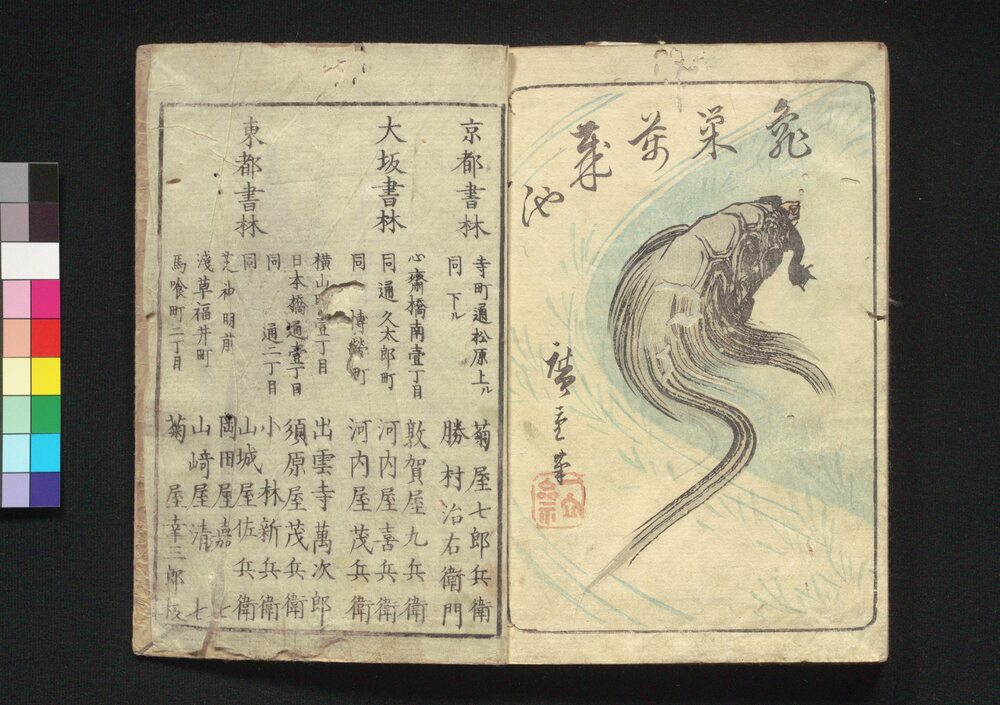 廣重筆
京都書林
寺町通松原上ル 菊屋七郎兵衛
同 下ル 勝村治右衛門
大坂書林
心齋橋南壹丁目 敦賀屋九兵衛
同通久太郎町 河内屋喜兵衛
同 博勞町 河内屋茂兵衛
東都書林
横山町壹丁目 出雲寺萬次郎
日本橋通壹丁目 須原屋茂兵衛
同 通二丁目 小林新兵衛
同 山城屋佐兵衛
芝神明前 岡田屋嘉七
淺草福井町 山﨑屋清七
馬喰町二丁目 菊屋幸三郎板